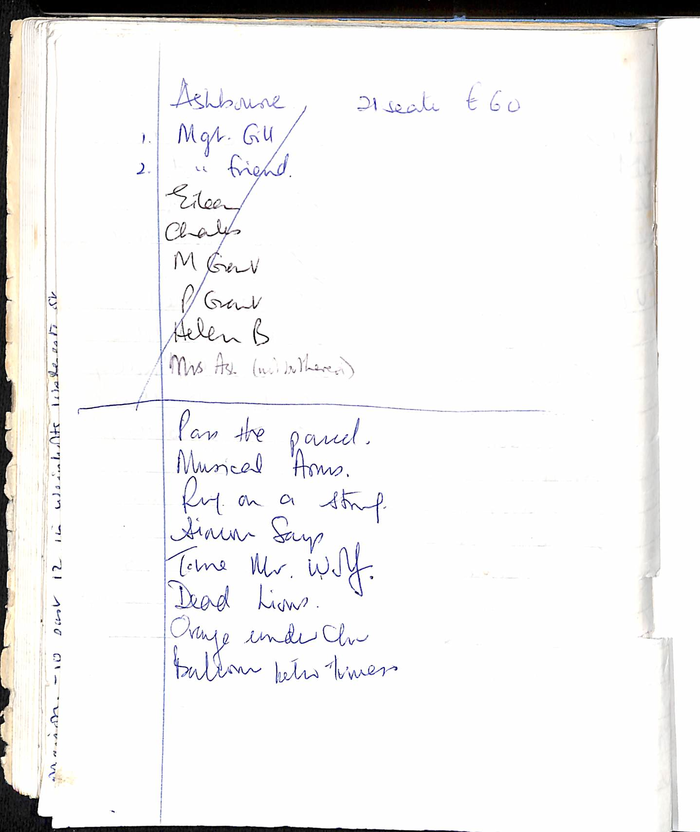 Ashbourne 21 seats £60
1. Mgt. Gill
2. " friend.
Eileen
Charles
M Grant
P Grant
Helen B
Mrs Ash
Pass the parcel.
Musical Arms.
Ring on a string.
Simon Says
Time Mr. Wolf.
Dead Lions.
Orange under Chin
Balloon between knees